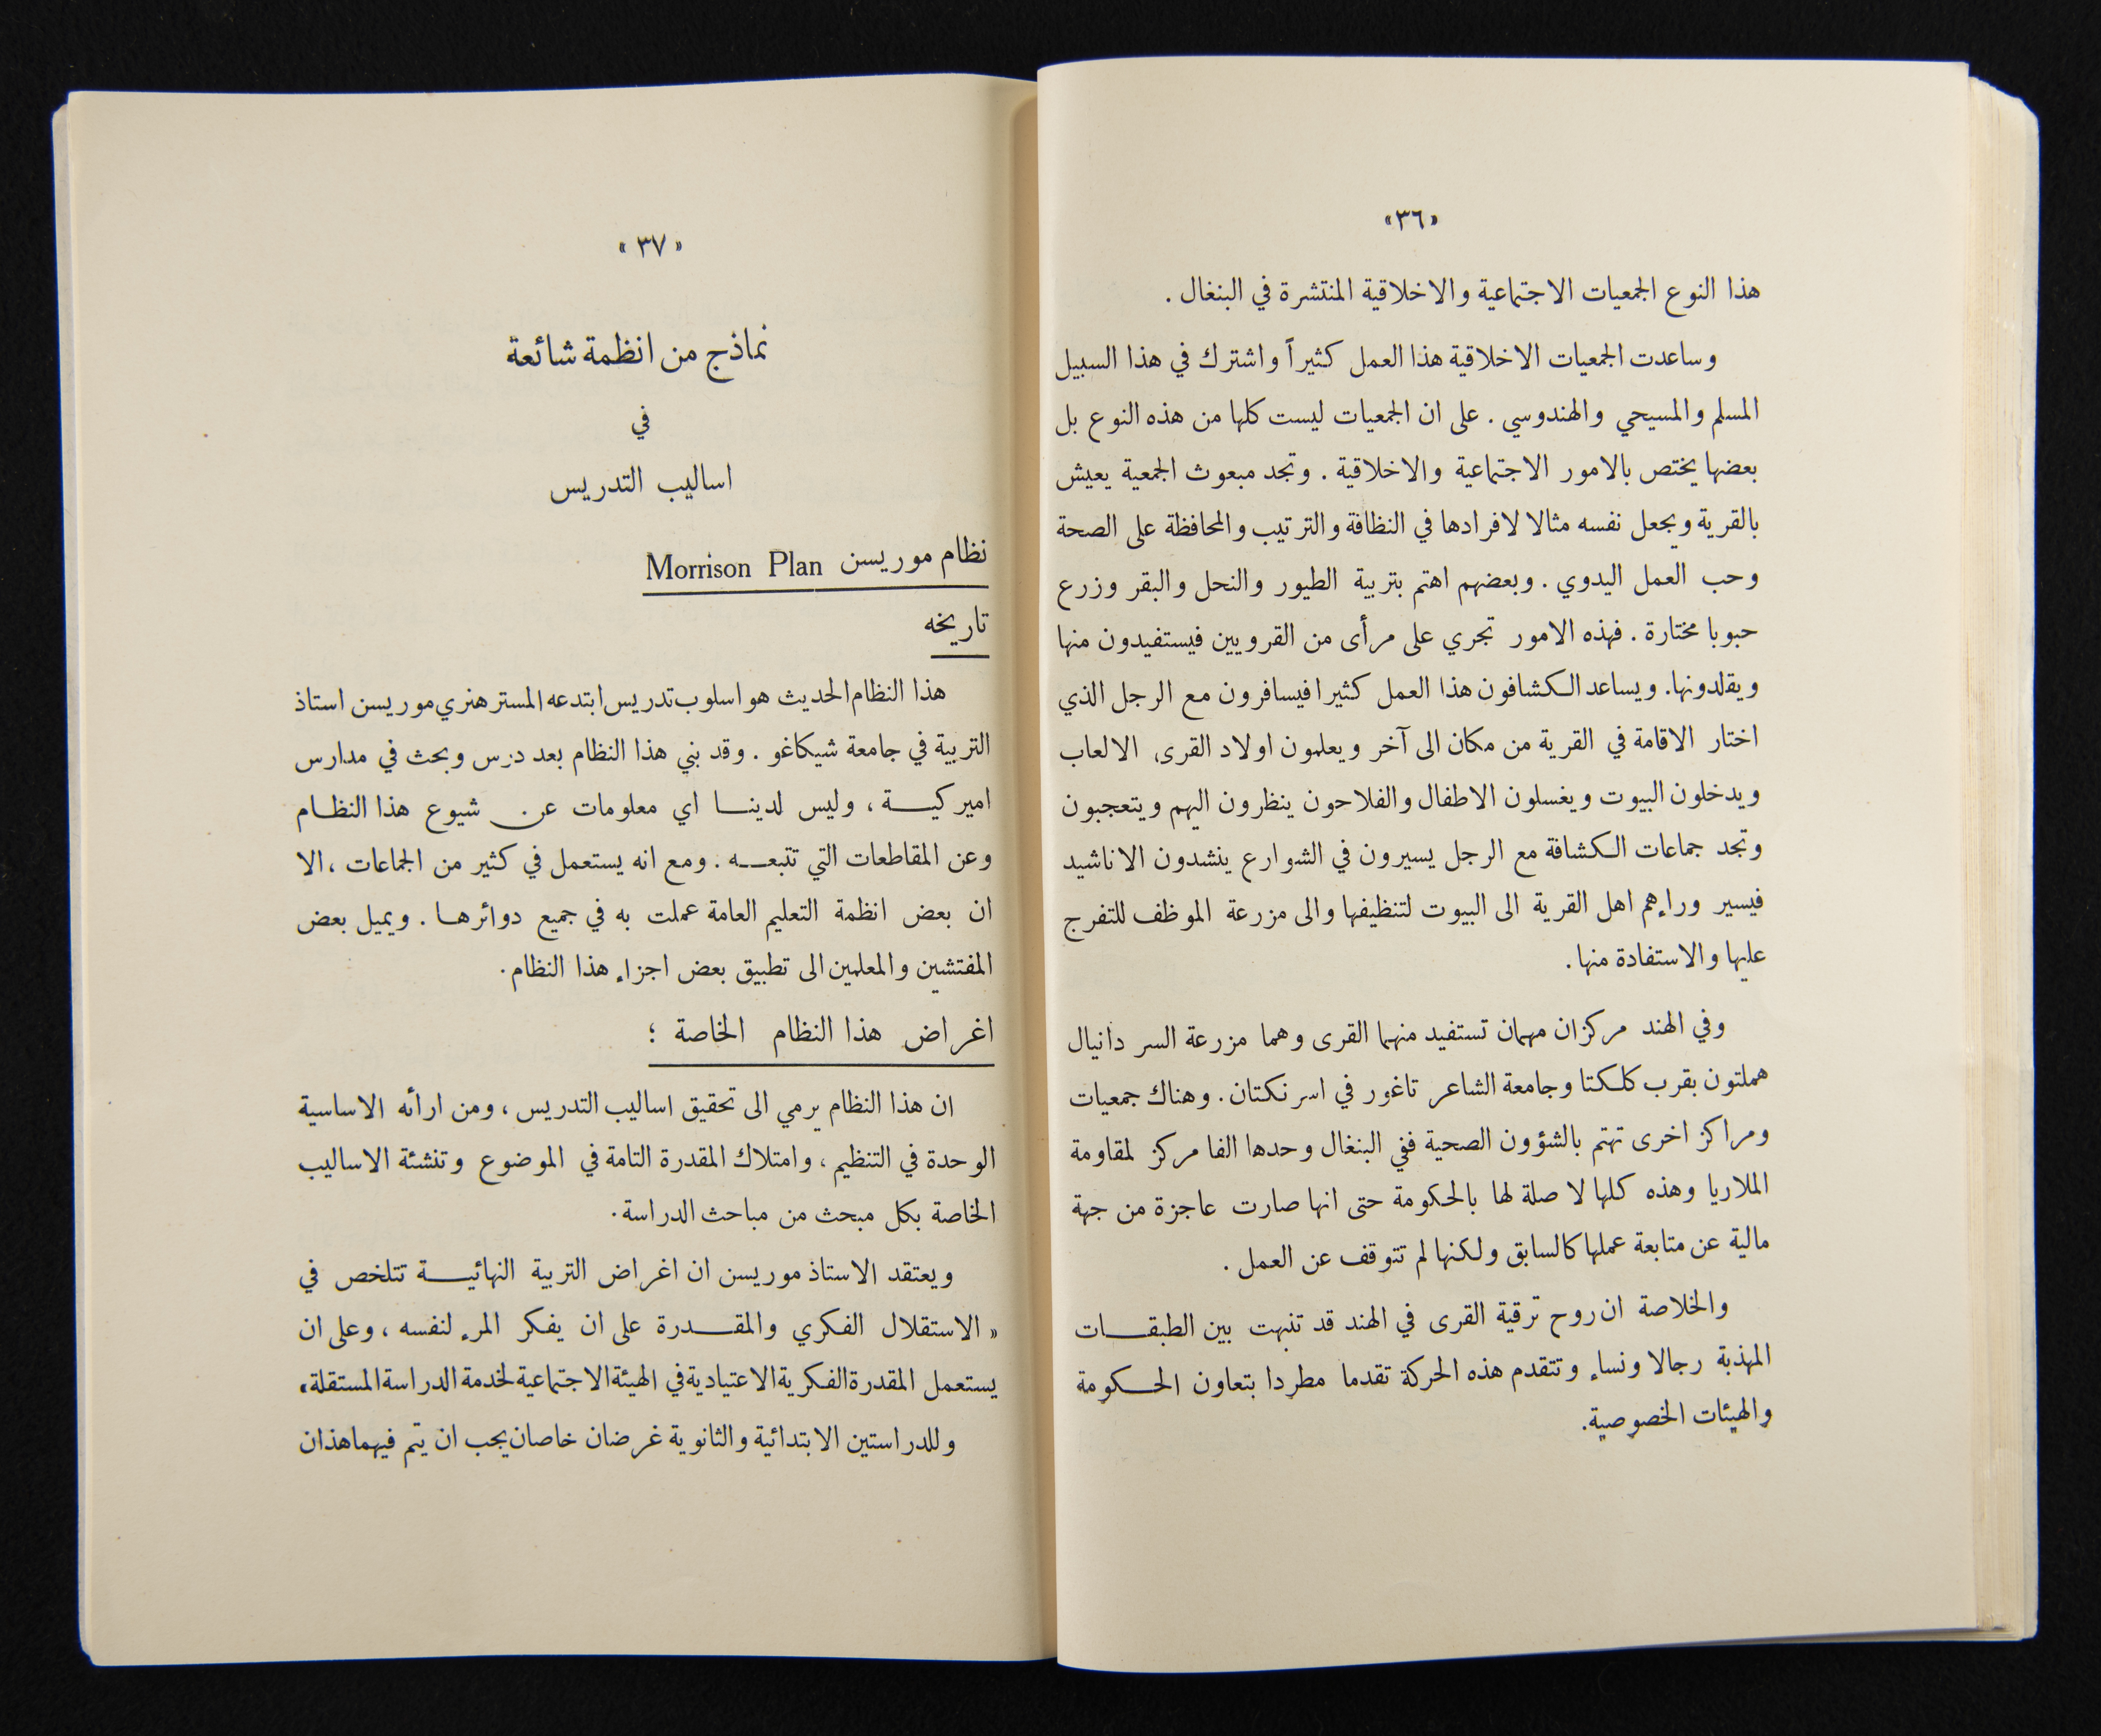 «٣٦»
هذا النوع الجمعيات الاجتماعية والاخلاقية المنتشرة في البنغال .
وساعدت الجمعيات الاخلاقية هذا العمل كثيراً واشترك في هذا السبيل
المسلم والمسيحي والهندوسي . على ان الجمعيات ليست كلها من هذه النوع بل
بعضها يختص بالامور الاجتماعية والاخلاقية . وتجد مبعوث الجمعية يعيش
بالقرية ويجعل نفسه مثالا لافرادها في النظافة والترتيب والمحافظة على الصحة
وحب العمل اليدوي . وبعضهم اهتم بتربية الطيور والنحل والبقر وزرع
حبوبا مختارة . فهذه الامور تجري على مرأى من القرويين فيستفيدون منها
ويقلدونها. ويساعد الكشافون هذا العمل كثيرا فيسافرون مع الرجل الذي
اختار الاقامة في القرية من مكان الى آخر ويعلمون اولاد القرى الالعاب
ويدخلون البيوت ويغسلون الاطفال والفلاحون ينظرون اليهم ويتعجبون
وتجد جماعات الكشافة مع الرجل يسيرون في الشوارع ينشدون الاناشيد
فيسير وراءهم اهل القرية الى البيوت لتنظيفها والى مزرعة الموظف للتفرج
عليها والاستفادة منها .
وفي الهند مركزان مهمان تستفيد منهما القرى وهما مزرعة السر دانيال
هملتون بقرب كلكتا وجامعة الشاعر تاغور في اسرنكتان . وهناك جمعيات
ومراكز اخرى تهتم بالشؤون الصحية ففي البنغال وحدها الفا مركز لمقاومة
الملاريا وهذه كلها لا صلة لها بالحكومة حتى انها صارت عاجزة من جهة
مالية عن متابعة عملها كالسابق ولكنها لم تتوقف عن العمل .
والخلاصة ان روح ترقية القرى في الهند قد تنبهت بين الطبقات
المهذبة رجالا ونساء وتتقدم هذه الحركة تقدما مطردا بتعاون الحكومة
والهيئات الخصوصية.
« ٣٧ »
نماذج من انظمة شائعة
في
اساليب التدريس
نظام موريسن Morrison Plan
تاريخه
هذا النظام الحديث هو اسلوب تدريس ابتدعه المستر هنري موريسن استاذ
التربية في جامعة شيكاغو . وقد بني هذا النظام بعد درس وبحث في مدارس
اميركية ، وليس لدينا اي معلومات عن شيوع هذا النظام
وعن المقاطعات التي تتبعه . ومع انه يستعمل في كثير من الجماعات ، الا
ان بعض انظمة التعليم العامة عملت به في جميع دوائرها . ويميل بعض
المفتشين والمعلمين الى تطبيق بعض اجزاء هذا النظام .
اغراض هذا النظام الخاصة ؛
ان هذا النظام يرمي الى تحقيق اساليب التدريس ، ومن ارائه الاساسية
الوحدة في التنظيم ، وامتلاك المقدرة التامة في الموضوع وتنشئة الاساليب
الخاصة بكل مبحث من مباحث الدراسة .
ويعتقد الاستاذ موريسن ان اغراض التربية النهائية تتلخص في
« الاستقلال الفكري والمقدرة على ان يفكر المرء لنفسه ، وعلى ان
يستعمل المقدرة الفكرية الاعتيادية في الهيئة الاجتماعية لخدمة الدراسة المستقلة»
وللدراستين الابتدائية والثانوية غرضان خاصان يجب ان يتم فيهما هذان